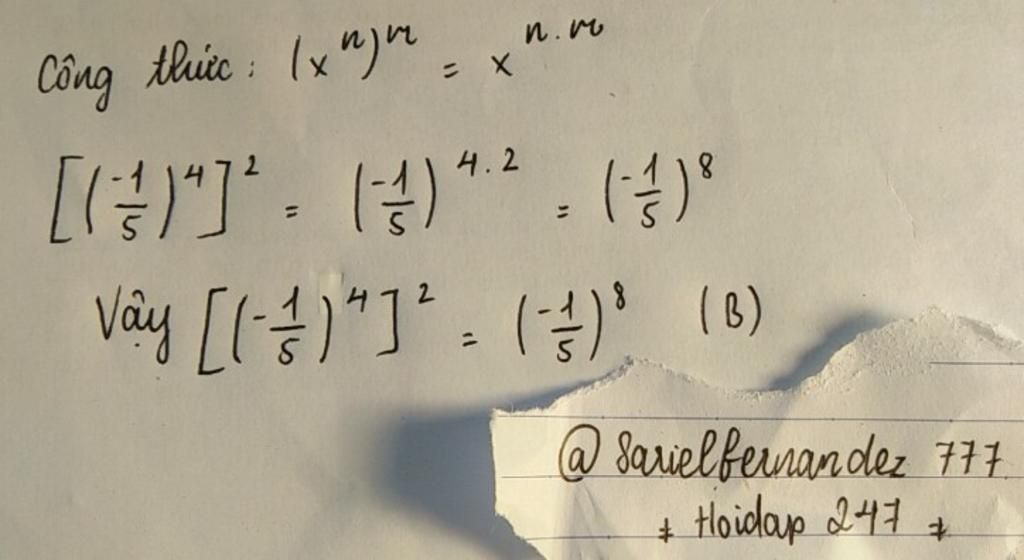 Công thức: (xⁿ)ᵐ = xⁿ·ᵐ
[(-1/5)⁴]² = (-1/5)⁴·² = (-1/5)⁸
Vậy [(-1/5)⁴]² = (-1/5)⁸ (B)
@sarielfernandez 777
* Hoidap 247 *